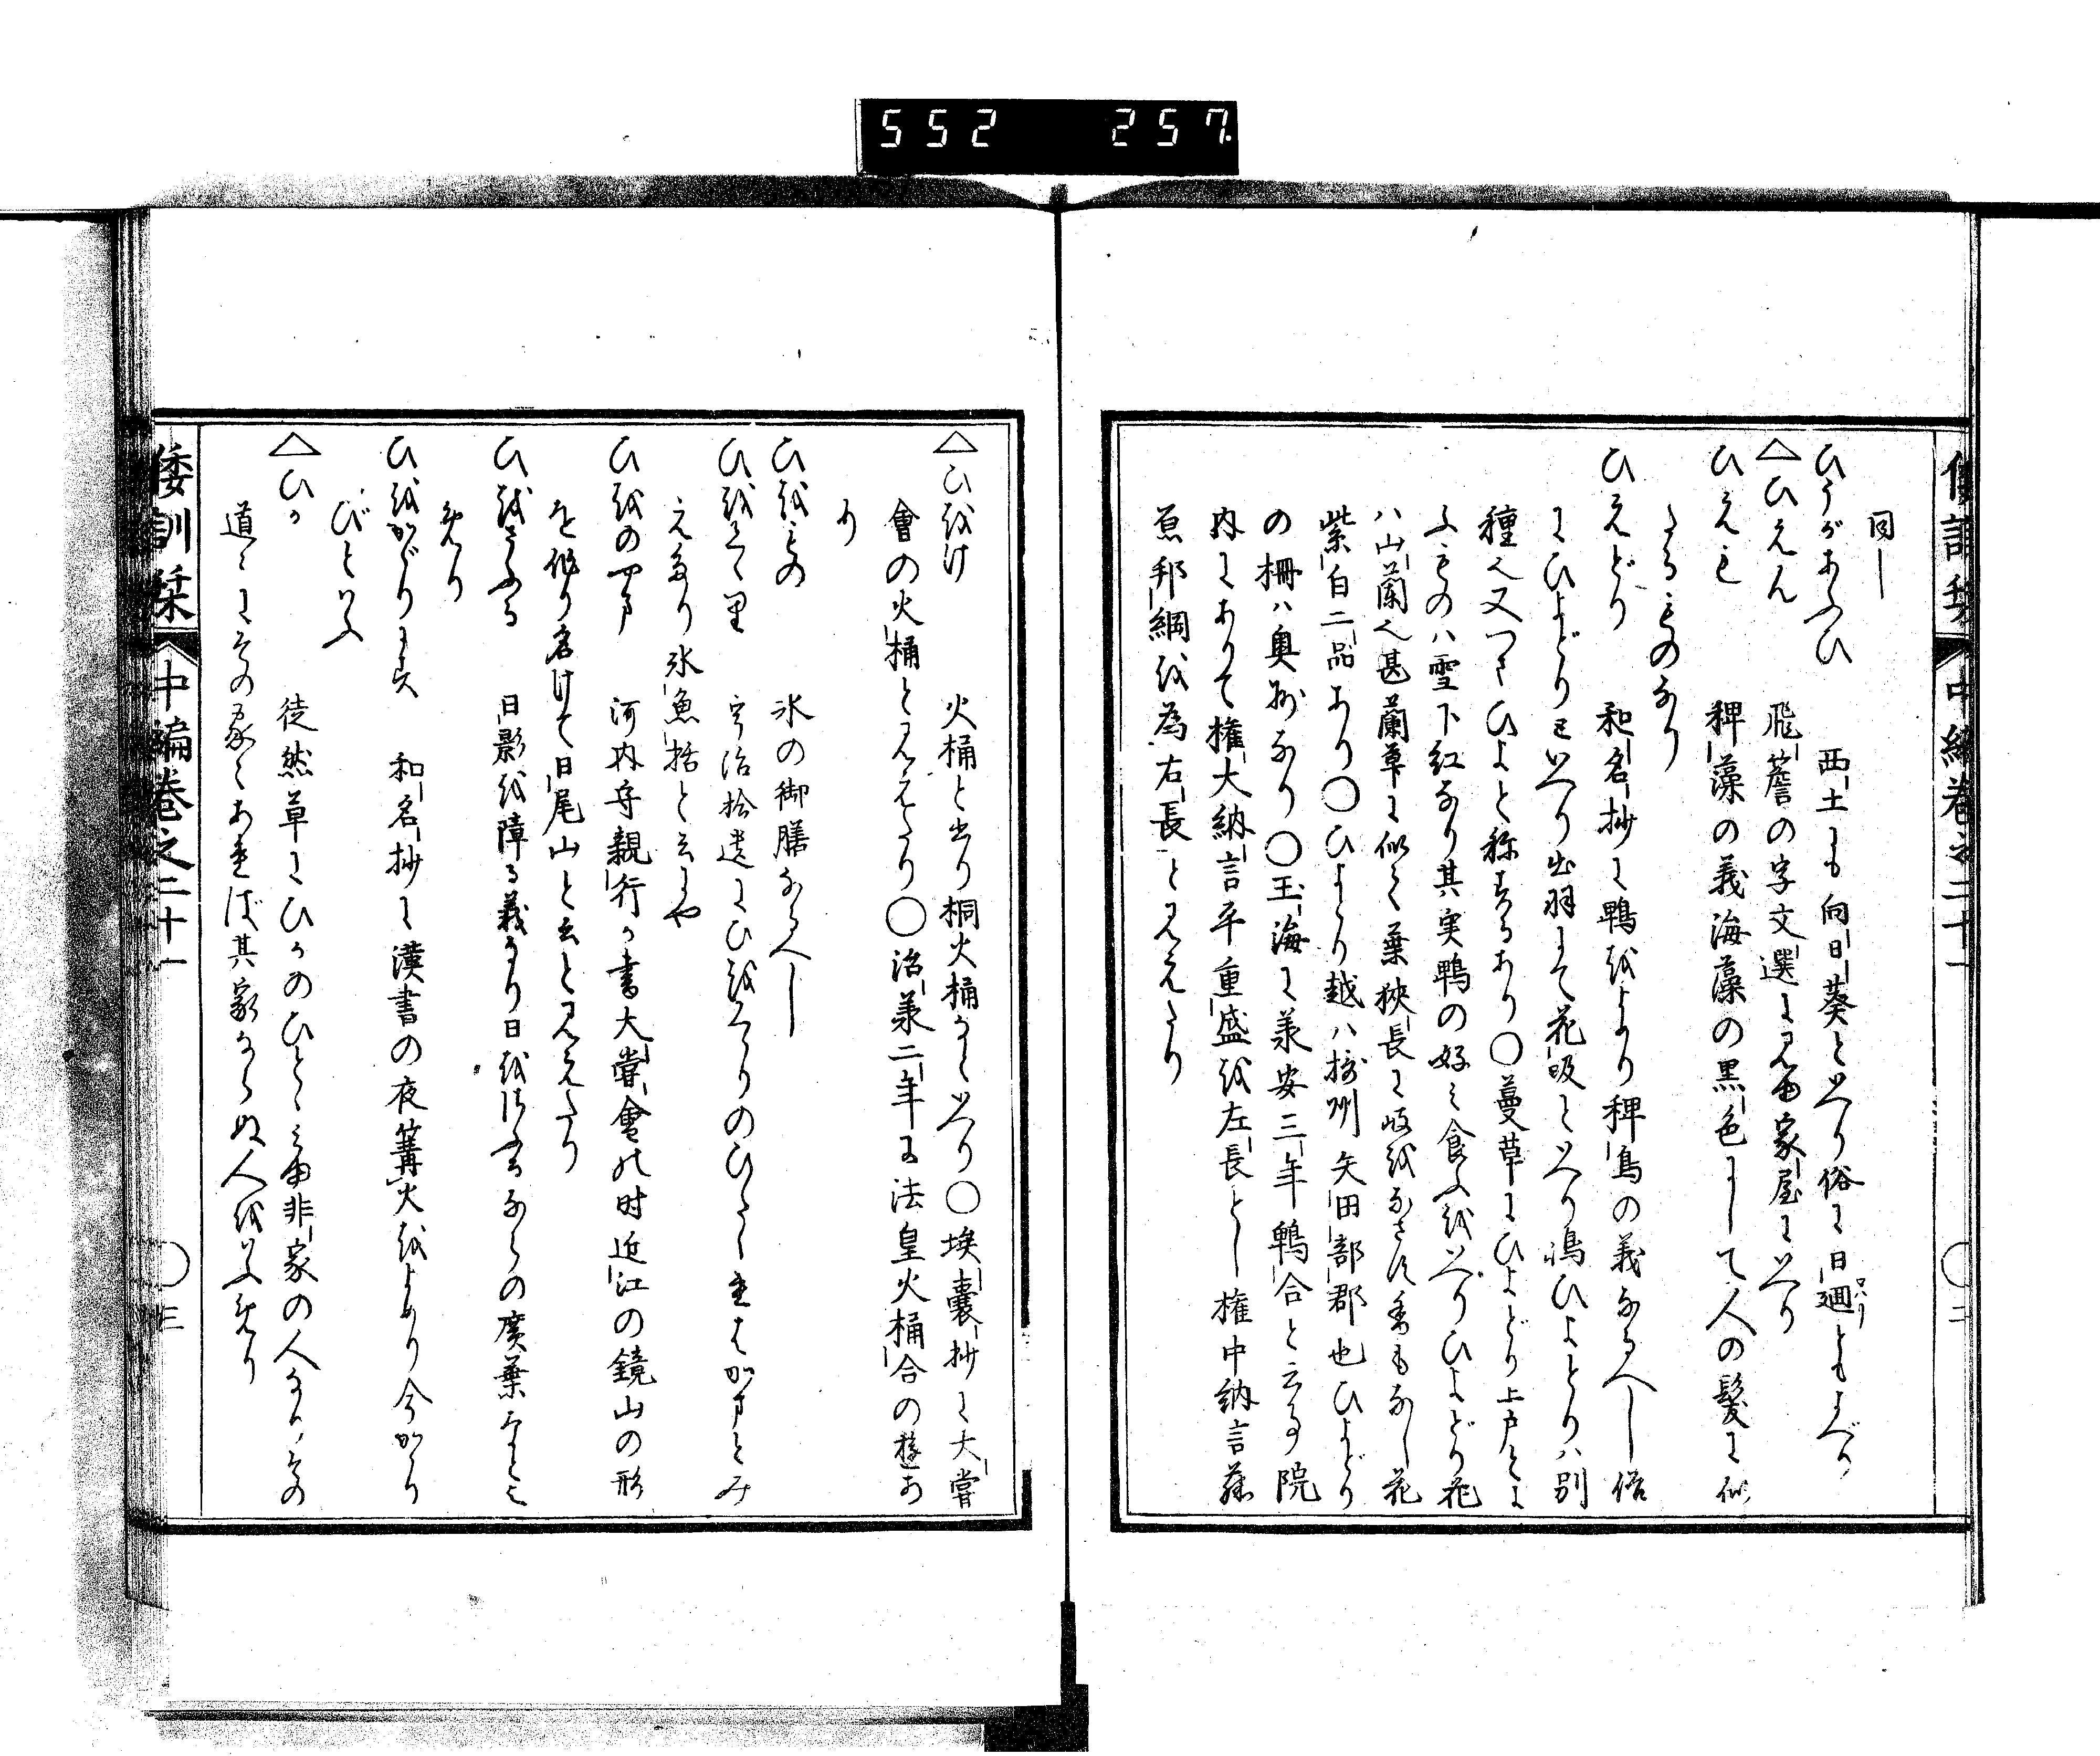 552 257
倭訓栞 中編巻之二十一 〇二
同し
ひうがあふひ 西土にも向日葵といへり俗に日廻ともよべり
△ひえん 飛簷の字文選に見ゆ家屋にいへり
ひえも 稗藻の義海藻の黒色にして人の髪に似
たるものなり
ひえどり 和名抄に鴨をよめり稗鳥の義なるへし俗
にひよどりといへり出羽にて花吸といへり嶋ひよとりハ別
種也又つさひよと称するあり〇蔓草にひよどり上戸とい
ふものハ雪下紅なり其実鴨の好み食ふをいへりひよどり花
ハ山蘭也甚蘭草に似て葉狭長に岐をなさす香もなし花
紫白二品あり〇ひよどり越ハ摂州矢田部郡也ひよどり
の柵ハ奥州なり〇玉海に承安三年鵯合と云事院
内にありて権大納言平重盛を左長とし権中納言藤
原邦綱を為右長と見えたり
△ひをけ 火桶と出り桐火桶なといへり〇埃嚢抄に大嘗
會の火桶と見えたり〇治承二年に法皇火桶合の遊あ
り
ひをもの 氷の御膳なるへし
ひをくゝり 宇治拾遺にひをくゝりのひたゝれはかまとみ
えたり氷魚括と云にや
ひをの山 河内守親行か書大嘗會の時近江の鏡山の形
を作り名けて日尾山と云と見えたり
ひをさふる 日影を障る義なり日をさふるならの廣葉なとよ
めり
ひをかゞりにス 和名抄に漢書の夜篝火をよめり今かゝり
びといふ
△ひか 徒然草にひかのひとゝみゆ非家の人なり、その
道にその家々あれば其家ならぬ人をいふめり
倭訓栞 中編巻之二十一 〇三